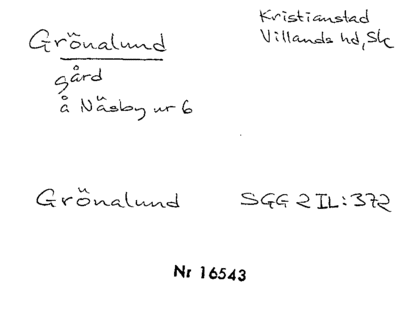 Grönalund
Kristianstad
Villands hd, Sk
gård
å Näsby nr 6
Grönalund
SGG 2 IL:372
Nr 16543